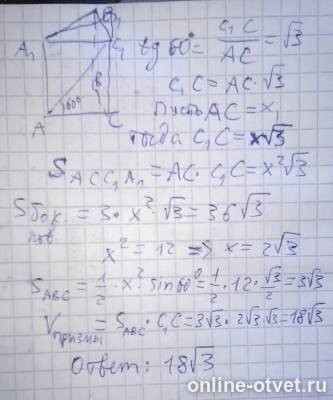 A₁ B₁ C₁
A B C 60°
tg 60° = C₁C / AC = √3
C₁C = AC·√3
Пусть AC = x,
тогда C₁C = x√3
S ACC₁A₁ = AC · C₁C = x²√3
S бок пов = 3 · x² · √3 = 36√3
x² = 12 => x = 2√3
S ABC = 1/2 · x² sin 60° = 1/2 · 12 · √3/2 = 3√3
V призмы = S ABC · C₁C = 3√3 · 2√3 · √3 = 18√3
Ответ: 18√3
online-otvet.ru